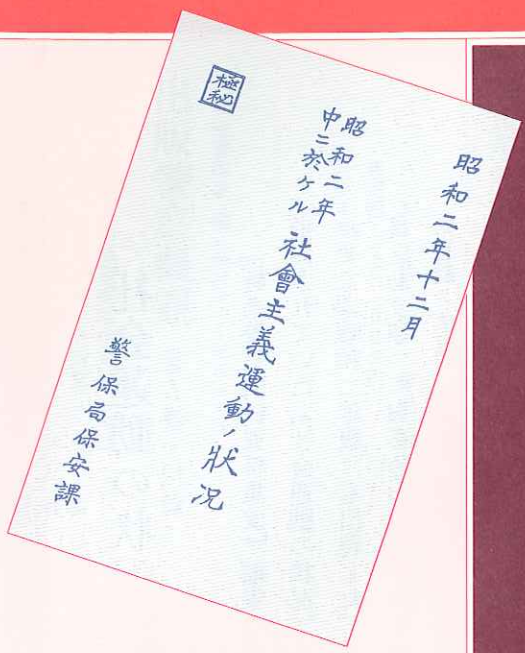 昭和二年十二月
昭和二年
中ニ於ケル
社會主義運動ノ狀況
極秘
警保局保安課